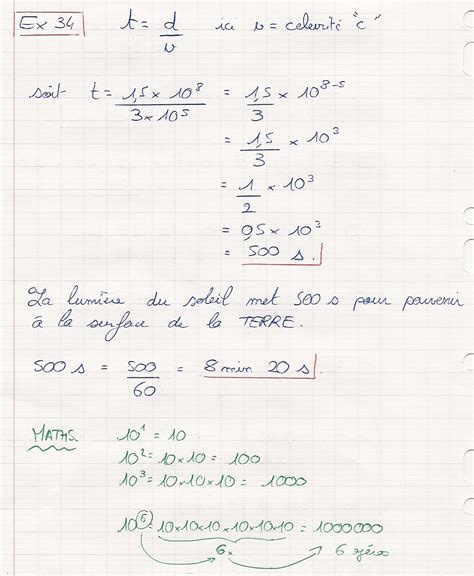 Ex 34 t = d/v ici v = celeurité "c"
soit t = 1,5 x 10⁸ / 3 x 10⁵ = 1,5/3 x 10⁸⁻⁵
= 1,5/3 x 10³
= 1/2 x 10³
= 0,5 x 10³
= 500 s.
La lumière du soleil met 500 s pour parvenir
à la surface de la TERRE.
500 s = 500/60 = 8 min 20 s.
MATHS 10¹ = 10
10² = 10 x 10 = 100
10³ = 10 x 10 x 10 = 1000
10⁶ = 10 x 10 x 10 x 10 x 10 x 10 = 1000000
6x 6 zéros